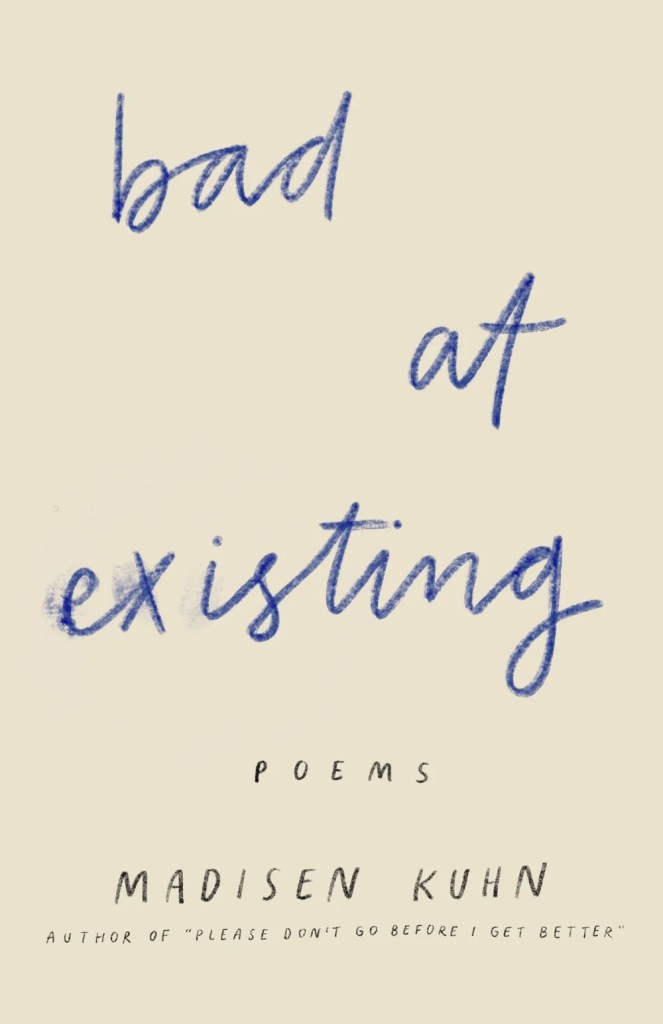 bad
at
existing
POEMS
MADISEN KUHN
AUTHOR OF "PLEASE DON'T GO BEFORE I GET BETTER"